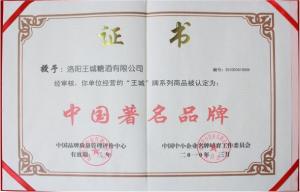 证书
授予：洛阳王城糖酒有限公司
经审核，你单位经营的“王城”牌系列商品被认定为：
中国著名品牌
中国品牌质量管理评价中心
有效期
中国中小企业名牌培育工作委员会
二0一0年 月